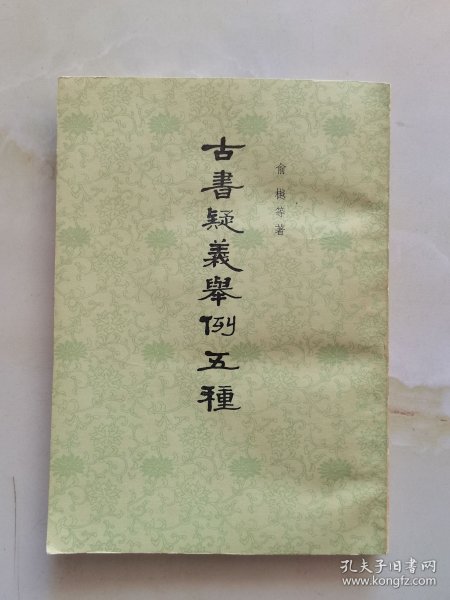 俞樾等著
古書疑義舉例五種
孔夫子旧书网
www.kongfz.com